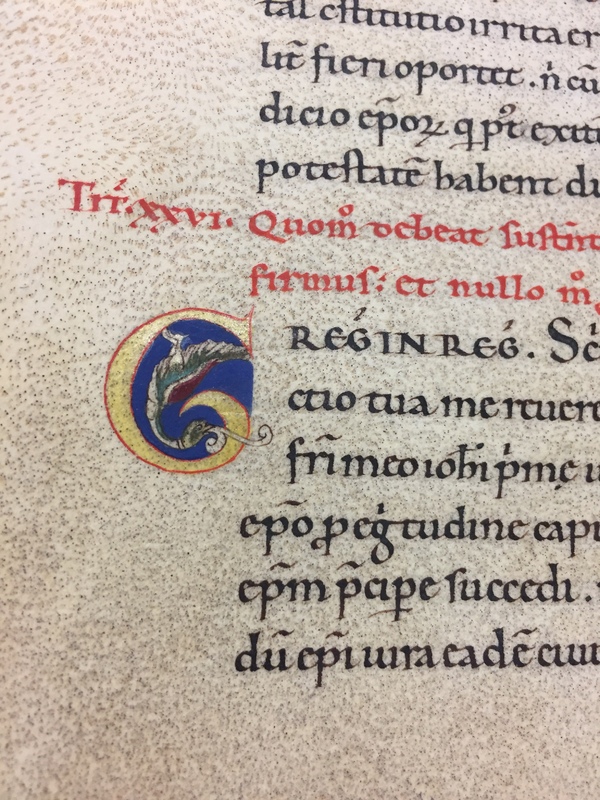 tal cſtitutio irrita er
lit̄ fieri oportet . ń cū
dicio ep̄oꝝ q pͦt exiti
poteſtatē habent du
Tit́. xxvi. Quom̊ debeat ſuſtin̄t
firmus: et nullo m̊
G REǴ IN REǴ. Sc̄
ctio tua me rtuere
fr̄i meo ioh̄i p̓mę u
ep̄o ꝓ eǵtudine capi
ep̄m p̄cipe ſuccedi .
dū ep̄i iura eadē ciuit